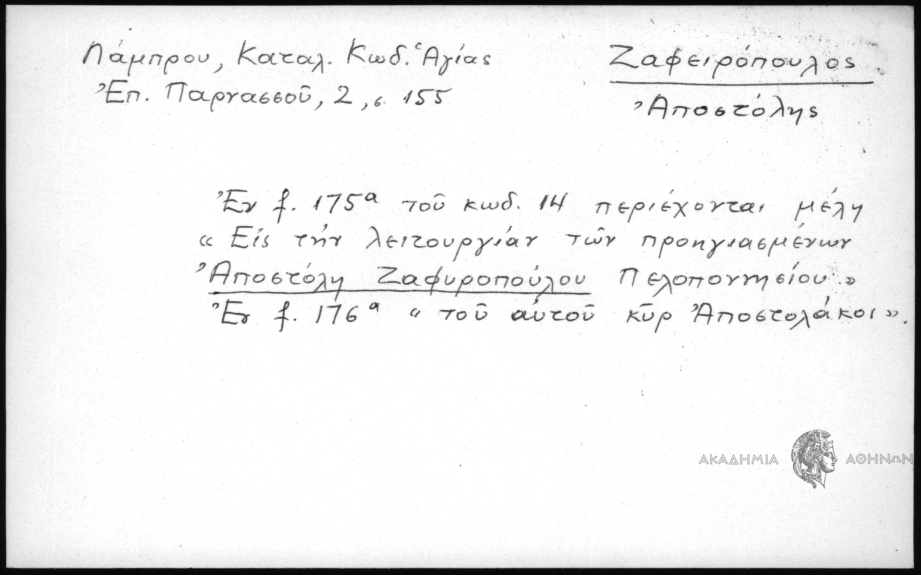 Λάμπρου, Καταλ. Κωδ. Ἁγίας
Ἐπ. Παρνασσοῦ, 2, σ. 155
Ζαφειρόπουλος
Ἀποστόλης
Ἐν f. 175α τοῦ κωδ. 14 περιέχονται μέλη
« Εἰς τὴν λειτουργίαν τῶν προηγιασμένων
Ἀποστόλη Ζαφυροπούλου Πελοποννησίου »
Ἐν f. 176α « τοῦ αὐτοῦ κῦρ Ἀποστολάκοι ».
ΑΚΑΔΗΜΙΑ ΑΘΗΝΩΝ